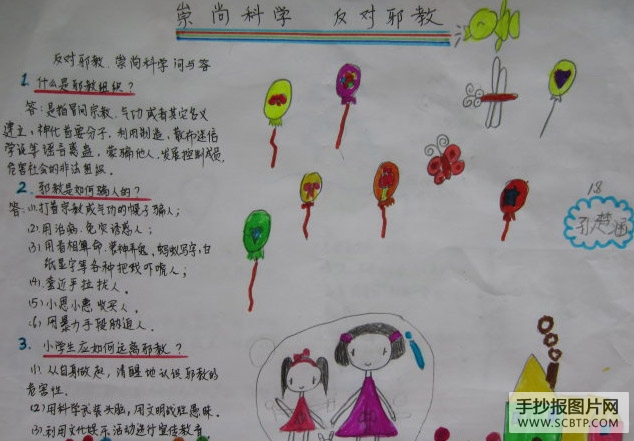 崇尚科学 反对邪教
反对邪教、崇尚科学问与答
1. 什么是邪教组织？
答：是指冒用宗教、气功或者其它名义
建立，神化首要分子，利用制造、散布迷信
学说等谣言惑蛊，蒙骗他人，发展控制成员，
危害社会的非法组织。
2. 邪教是如何骗人的？
答：(1)、打着宗教或气功的幌子骗人；
(2)、用治病、免灾诱惑人；
(3)、用看相算命、蚂蚁写字，白
纸显字等各种把戏吓唬人；
(4)、套近乎拉拢人。
(5)、小恩小惠收买人，
(6)、用暴力手段胁迫人．
3. 小学生应如何远离邪教？
(1)、从自身做起，清醒地认识邪教的
危害性．
(2)、用科学武装头脑，用文明战胜愚昧．
(3)、利用文化娱乐活动进行宣传教育，
18
手抄报图片网
WWW.SCBTP.COM